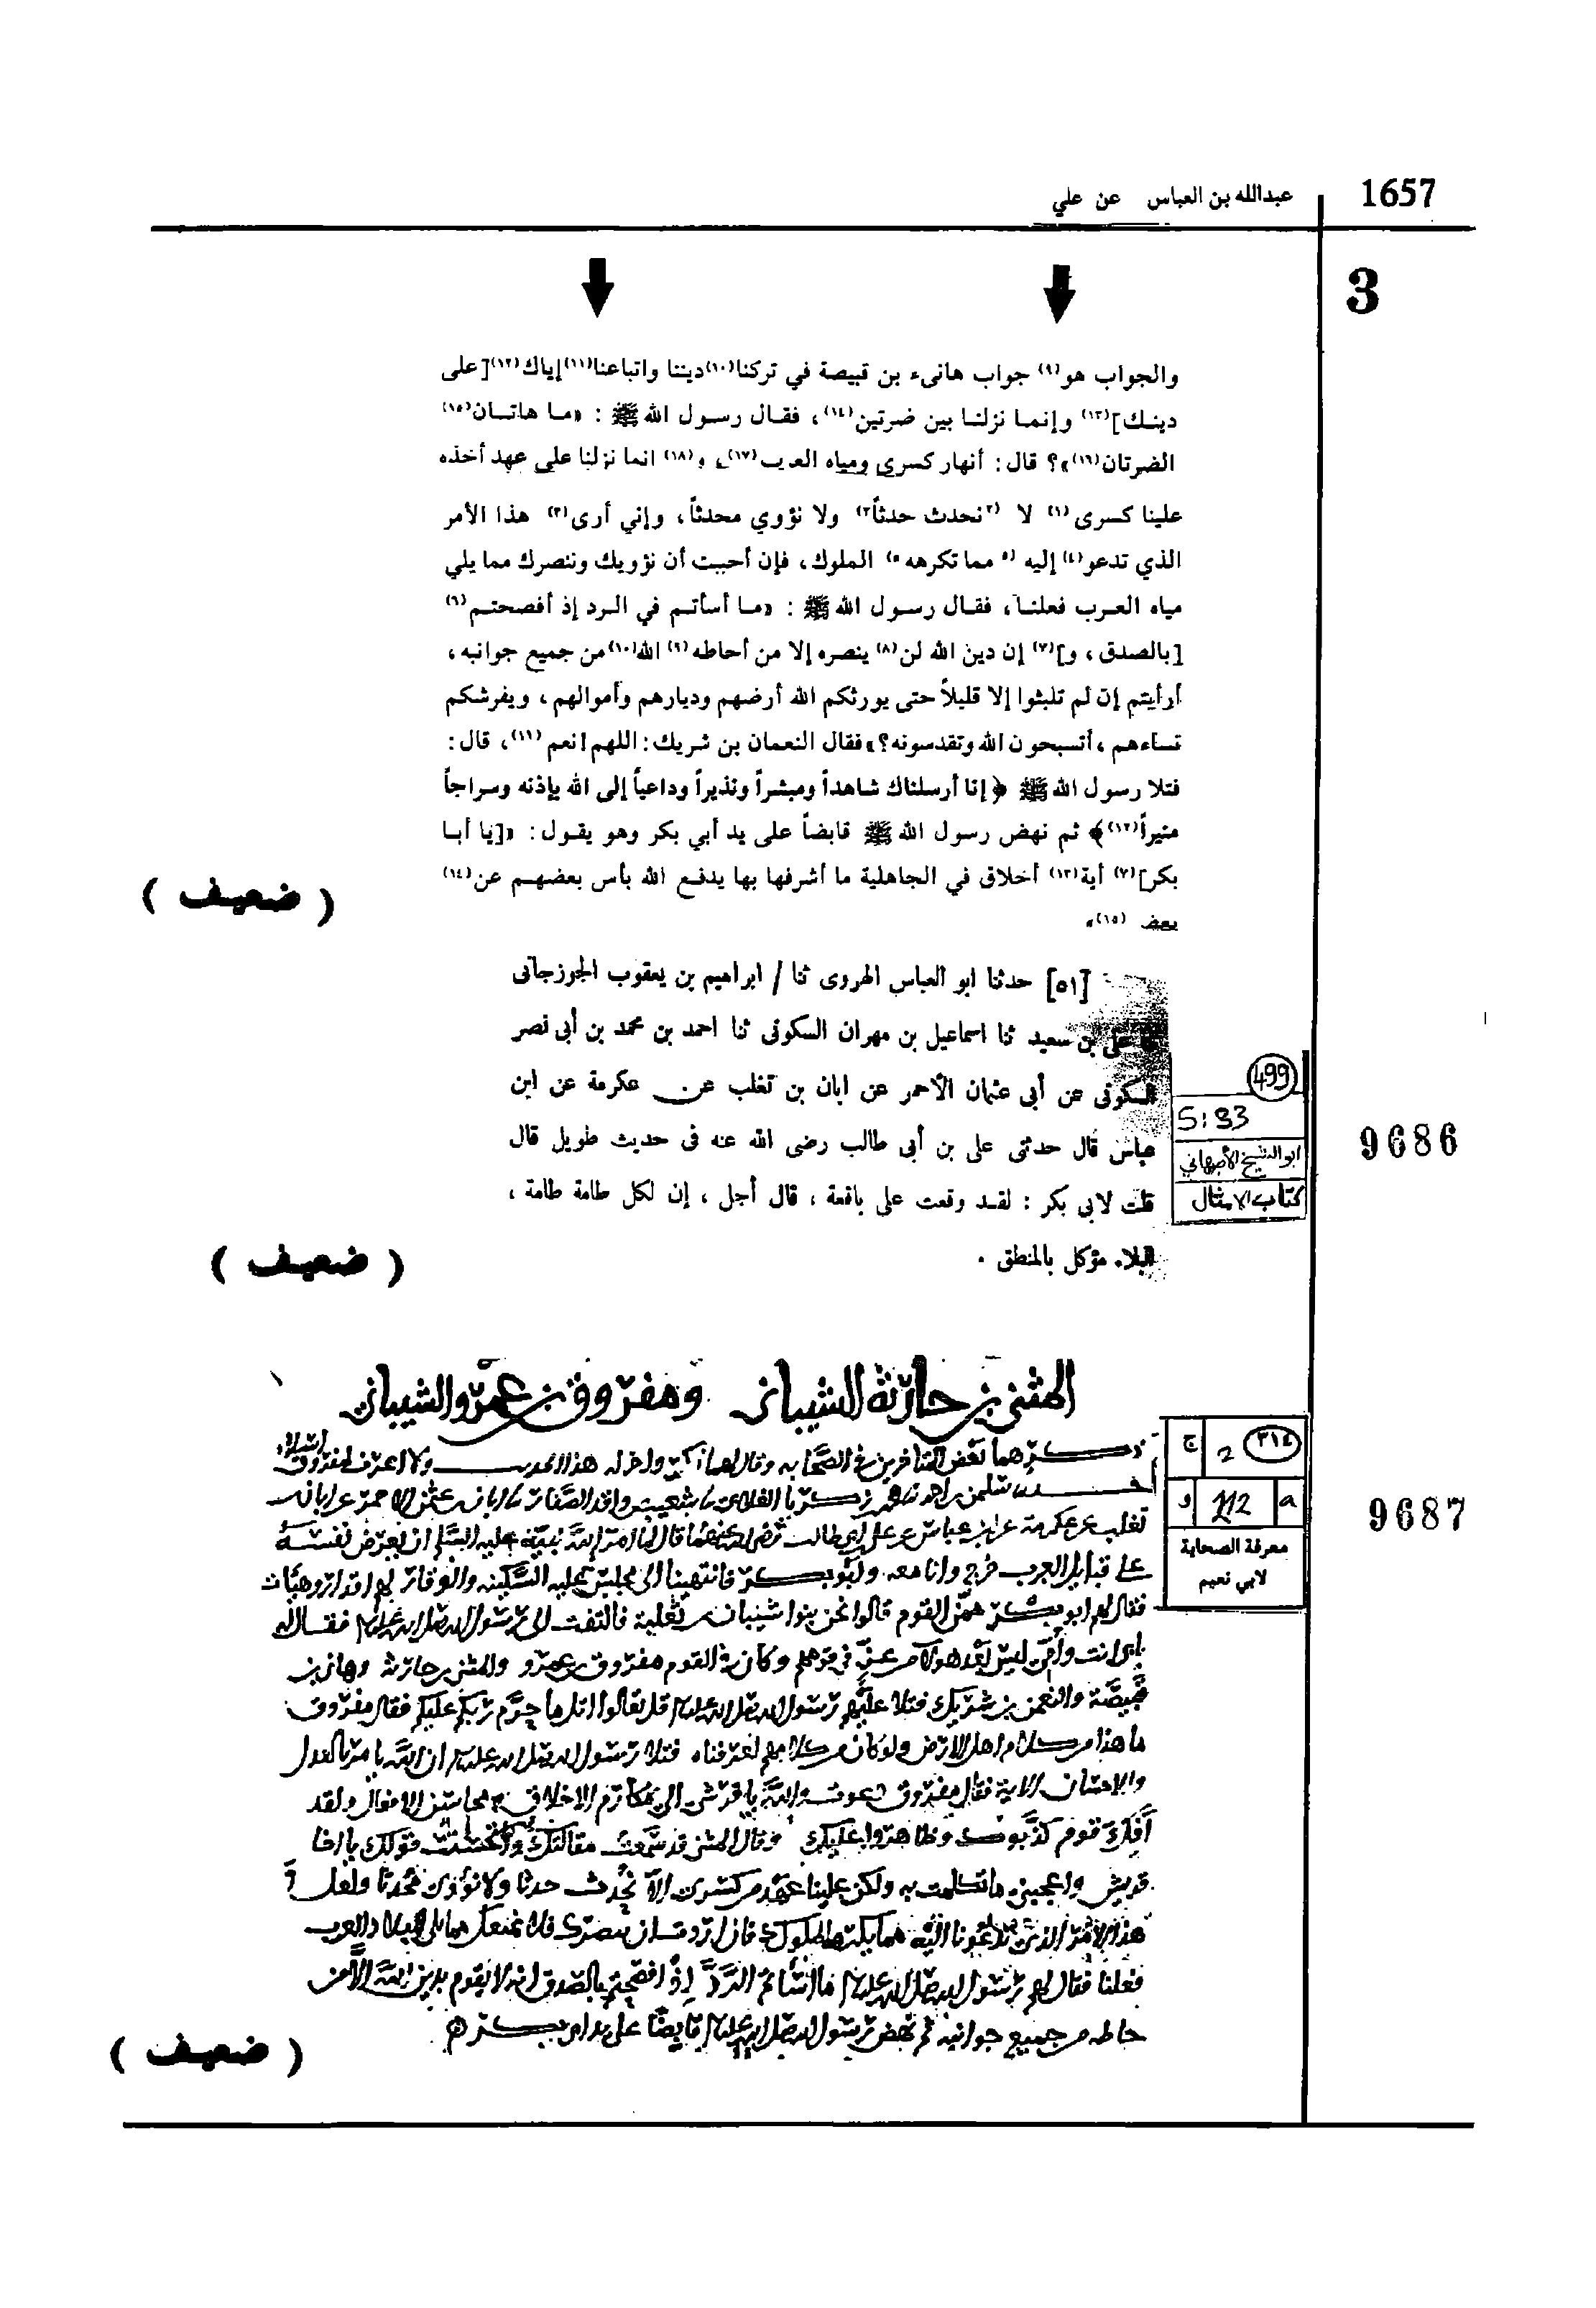 1657
عبدالله بن العباس عن علي
3
والجواب هو(٩) جواب هانىء بن قبيصة في تركنا(١٠)ديننا واتباعنا(١١)إياك(١٢)[على
دينك](١٣) وإنما نزلنا بين ضرتين(١٤)، فقال رسول الله ﷺ : «ما هاتان(١٥)
الضرتان(١٦)»؟ قال: أنهار كسرى ومياه العرب(١٧)، و(١٨) انما نزلنا على عهد أخذه
علينا كسرى(١) لا (٢نحدث حدثاً٢) ولا نؤوي محدثاً، وإني أرى(٣) هذا الأمر
الذي تدعو(٤) إليه (٥ مما تكرهه ٥) الملوك، فإن أحببت أن نؤويك وننصرك مما يلي
مياه العرب فعلنا، فقال رسول الله ﷺ : «ما أسأتم في الرد إذ أفصحتم(٦)
[بالصدق، و](٧) إن دين الله لن(٨) ينصره إلا من أحاطه(٩) الله(١٠)من جميع جوانبه،
أرأيتم إن لم تلبثوا إلا قليلاً حتى يورثكم الله أرضهم وديارهم وأموالهم، ويفرشكم
نساءهم، أتسبحون الله وتقدسونه؟» فقال النعمان بن شريك: اللهم! نعم(١١)، قال:
فتلا رسول الله ﷺ ﴿إنا أرسلناك شاهداً ومبشراً ونذيراً وداعياً إلى الله بإذنه وسراجاً
منيراً(١٢)﴾ ثم نهض رسول الله ﷺ قابضاً على يد أبي بكر وهو يقول: «[يا أبا
بكر](٧) أية(١٣) أخلاق في الجاهلية ما أشرفها بها يدفع الله بأس بعضهم عن(١٤)
بعض (١٥)»
( ضعيف )
[٥١] حدثنا ابو العباس الهروى ثنا / ابراهيم بن يعقوب الجوزجانى
على بن سعيد ثنا اسماعيل بن مهران السكونى ثنا احمد بن محمد بن أبى نصر
السكونى عن أبى عثمان الأحمر عن ابان بن تغلب عن عكرمة عن ابن
عباس قال حدثنى على بن أبى طالب رضى الله عنه فى حديث طويل قال
قلت لابى بكر : لقد وقعت على باقعة ، قال أجل ، إن لكل طامة طامة ،
البلاء مؤكل بالمنطق .
( ضعيف )
499
5:93
ابو الشيخ الأصبهاني
كتاب الامثال
9686
المثنى بن حارثة الشيباني ومفروق بن عمرو الشيباني
ذكرهما بعض المتأخرين في الصحابة وقال ولا اعرف لمفروق اسلاما
تغلب عن عكرمة عن ابن عباس عن على بن ابى طالب رضى الله عنهما قال لما امر الله نبيه عليه السلم ان يعرض نفسه
على قبايل العرب خرج وانا معه وابو بكر فانتهينا الى مجلس عليه السكينة والوقار لهم اقدار وهيآت
فقال لهم ابو بكر ممن القوم قالوا نحن بنوا شيبان بن ثعلبة فالتفت الى رسول الله صلى الله عليه وسلم فقال له
بابى انت وأمى ليس بعد هولاء من عز في قومهم وكان في القوم مفروق بن عمرو والمثنى بن حارثة وهانئ بن
قبيصة والنعمن بن شريك فتلا عليهم رسول الله صلى الله عليه وسلم قل تعالوا اتل ما حرم ربكم عليكم فقال مفروق
ما هذا من كلام اهل الارض ولو كان من كلامهم لعرفناه فتلا رسول الله صلى الله عليه وسلم ان الله يامر بالعدل
والاحسان الاية فقال مفروق دعوت والله يا قرشى الى مكارم الاخلاق ومحاسن الافعال ولقد
أفك قوم كذبوك وظاهروا عليك وقال المثنى قد سمعت مقالتك واستحسنت قولك يا اخا
قريش واعجبنى ما تكلمت به ولكن علينا عهد من كسرى الا نحدث حدثا ولا نؤوى محدثا ولعل
هذا الامر الذى تدعونا اليه مما يكره الملوك فان اردت ان ننصرك ونمنعك مما يلى بلاد العرب
فعلنا فقال لهم رسول الله صلى الله عليه وسلم ما اسأتم الرد إذ افصحتم بالصدق انه لا يقوم بدين الله الا من
حاطه من جميع جوانبه ثم نهض رسول الله صلى الله عليه وسلم قابضا على يد ابى بكر
( ضعيف )
٣١٤
2
ج
a
112
و
معرفة الصحابة
لابي نعيم
9687